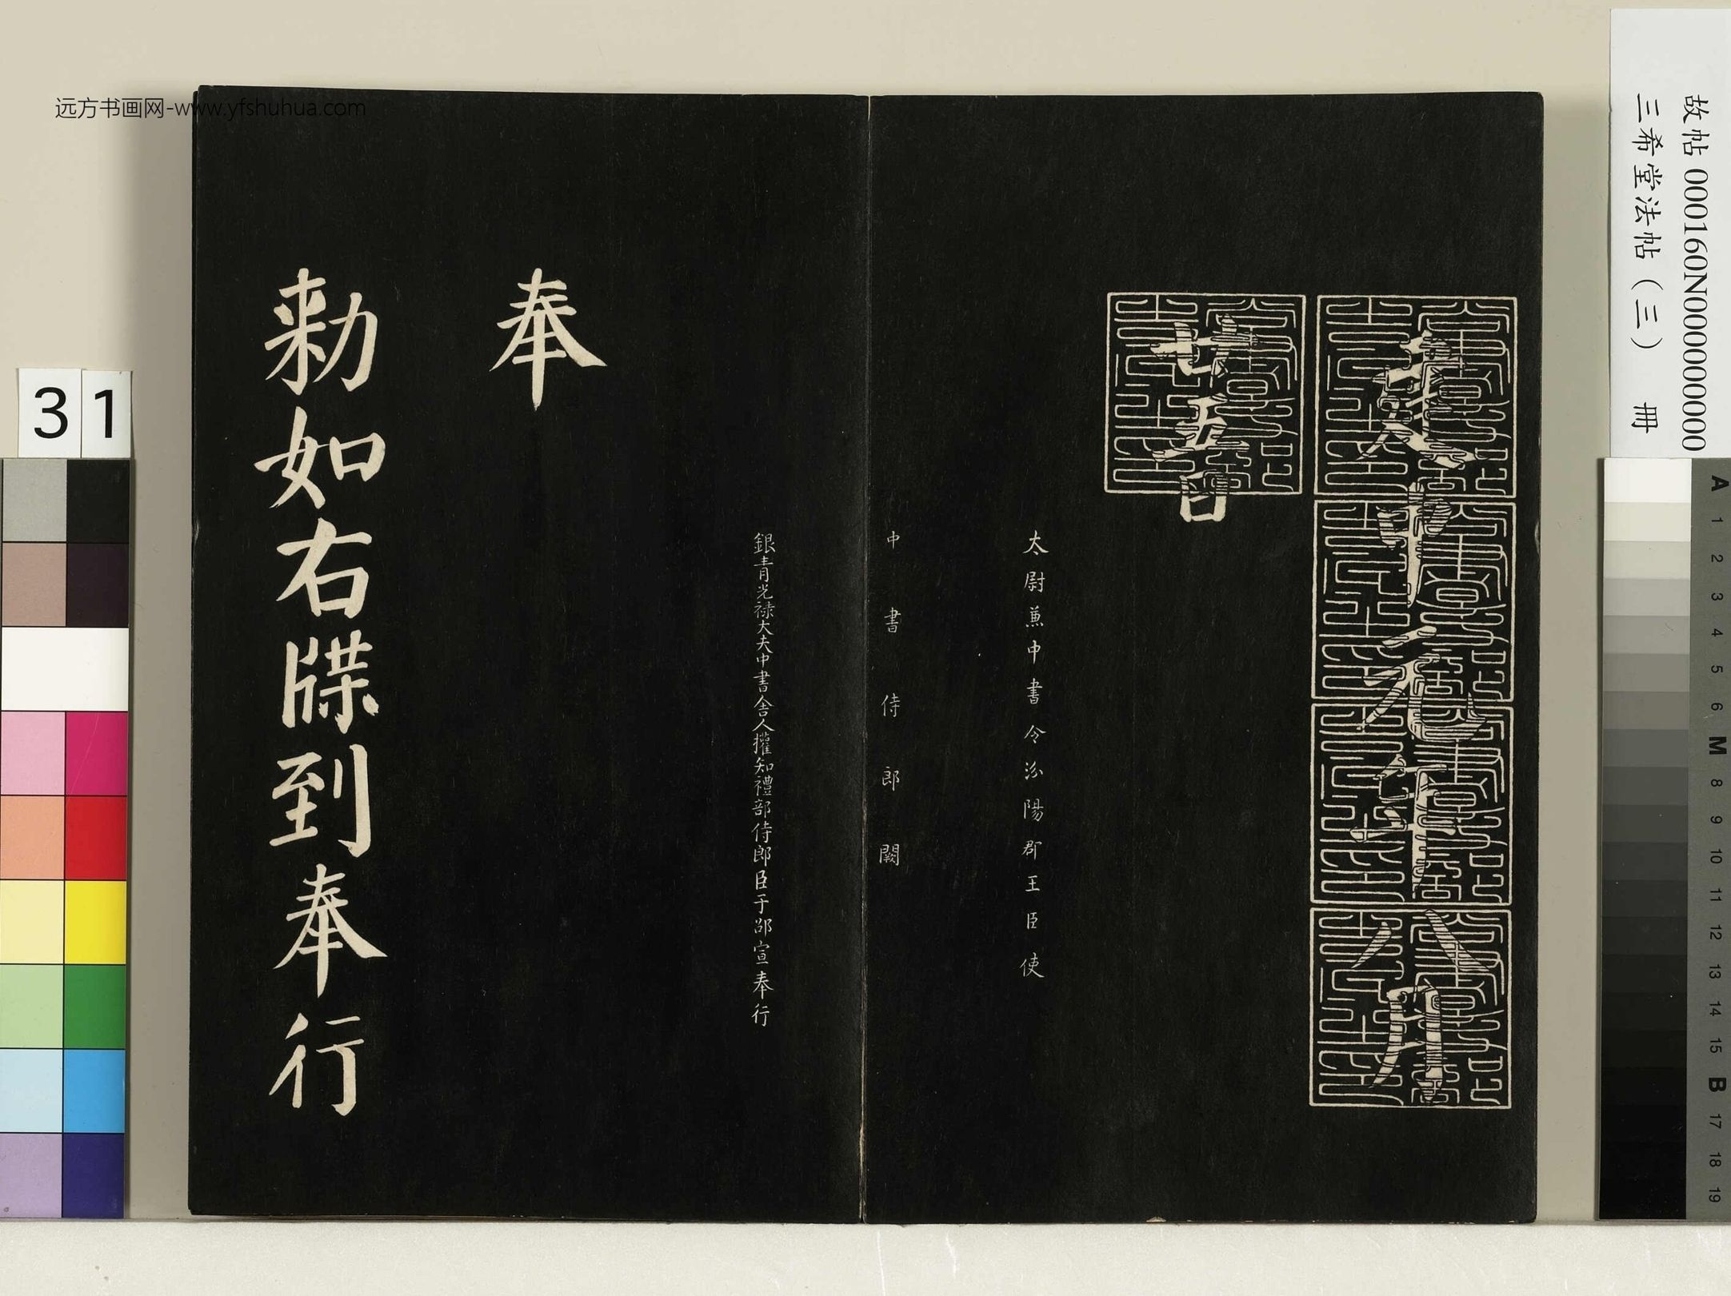 建中元年八月
廿五日
太尉兼中書令汾陽郡王臣使
中書侍郎闕
銀青光禄大夫中書舍人權知禮部侍郎臣于邵宣奉行
奉
勑如右牒到奉行
远方书画网-www.yfshuhua.com
故帖 000160N000000000
三希堂法帖（三） 冊
31
A
1
2
3
4
5
6
M
8
9
10
11
12
13
14
15
B
17
18
19